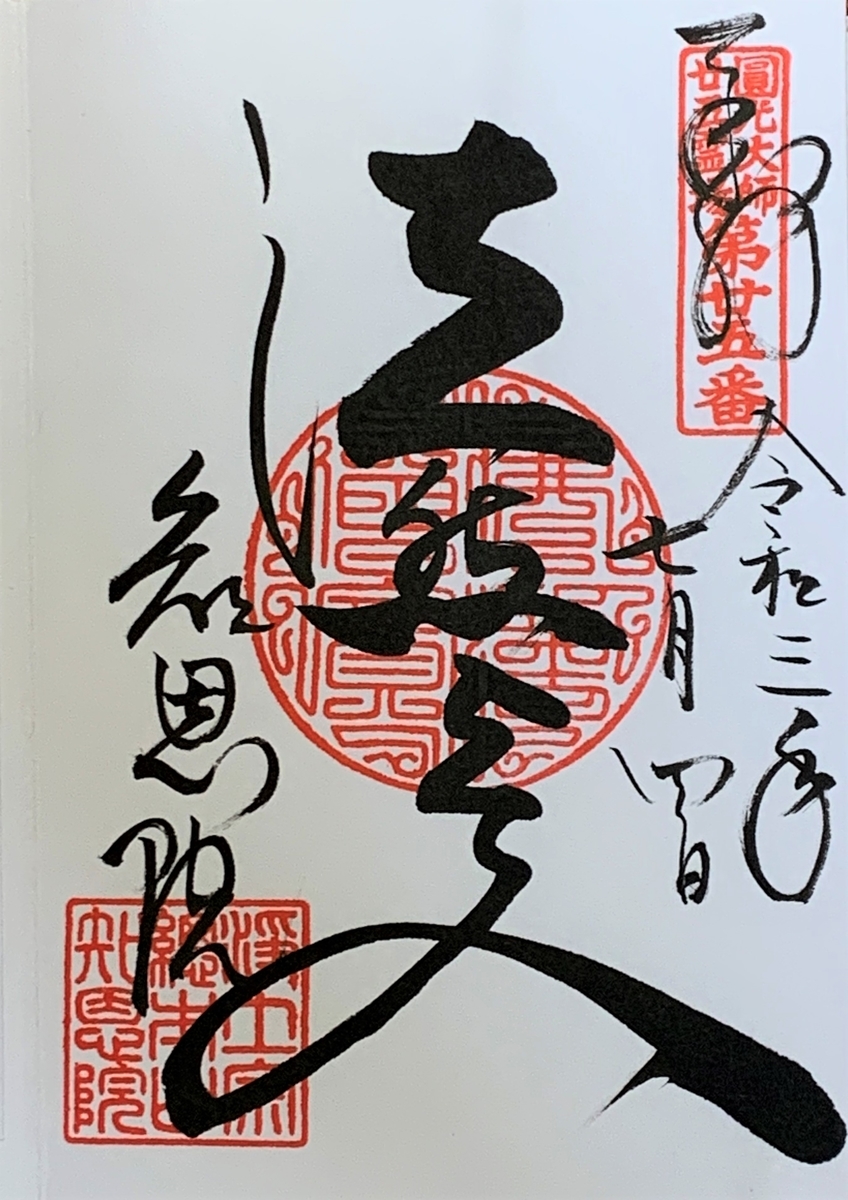 奉拝
圓光大師
廿五霊場
第廿五番
令和三年
七月四日
法然上人
知恩院
淨土宗
總本山
知恩院